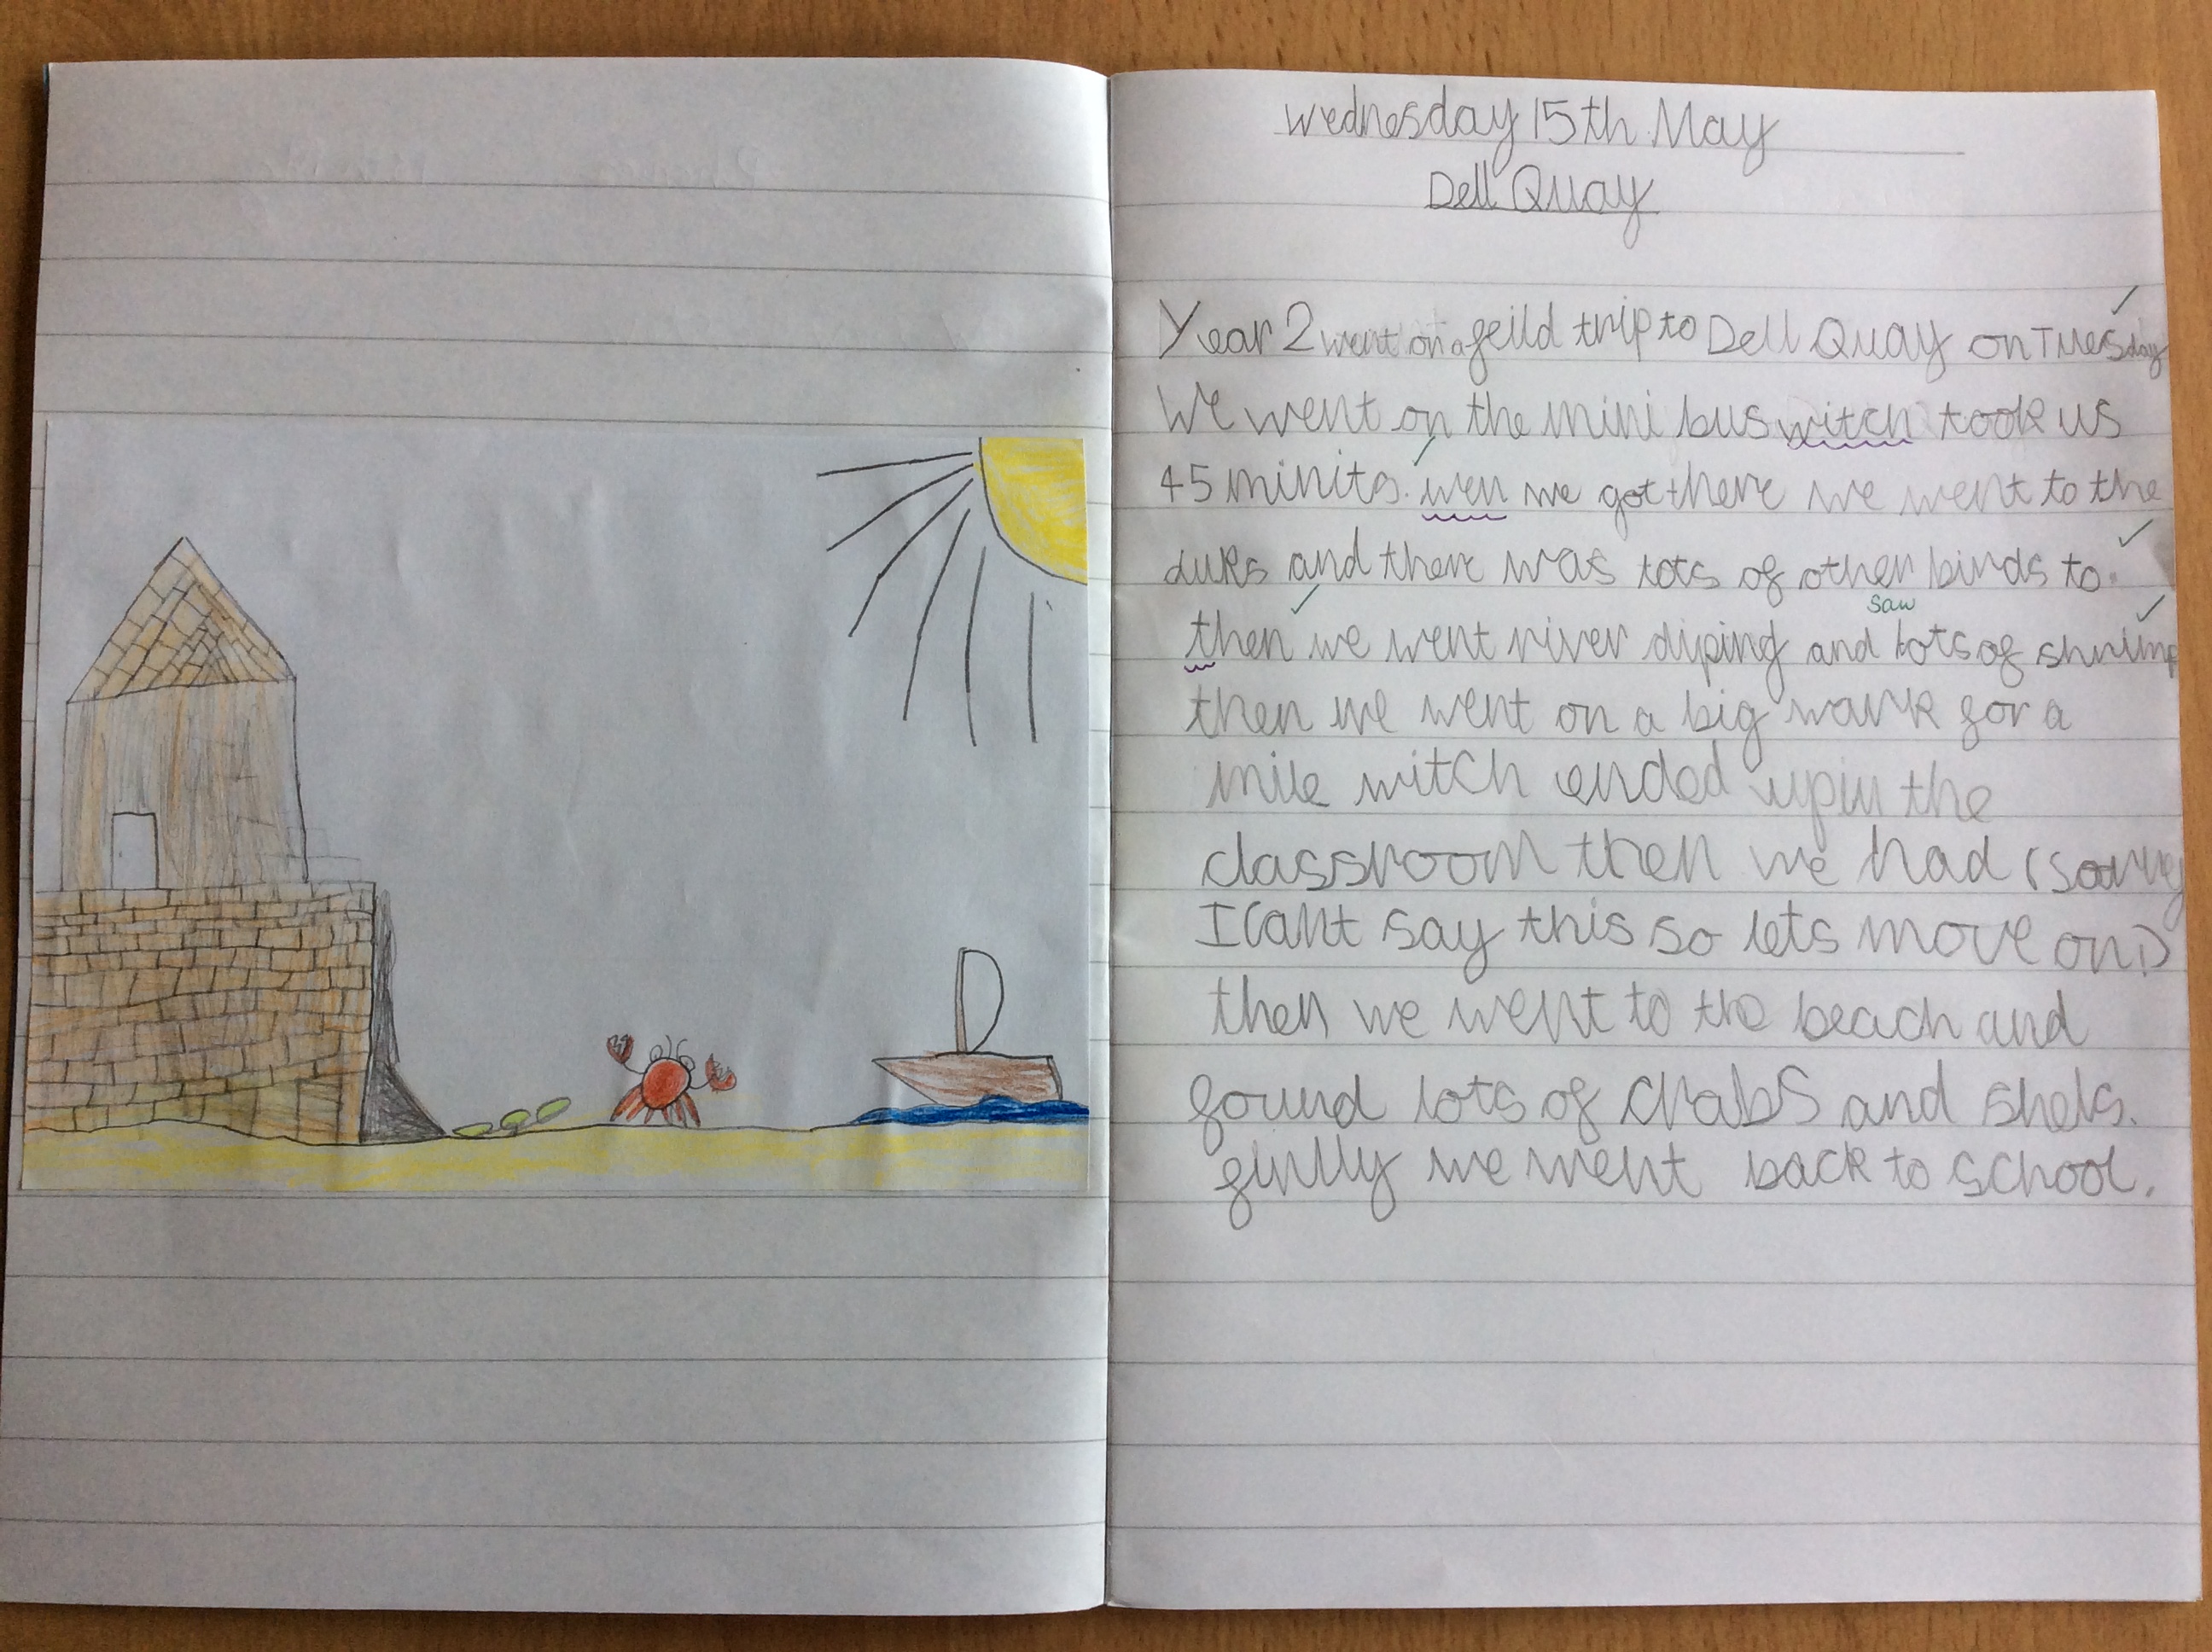 Wednesday 15th May
Dell Quay
Year 2 went on a feild trip to Dell Quay on Tuesday
We went on the mini bus witch took us
45 minits. wen we got there we went to the
duks and there was lots of other birds to.
saw
then we went river diping and lots of shrimp
then we went on a big wark for a
mile witch ended up in the
classroom then we had (sorry
I cant say this so lets move on.)
then we went to the beach and
found lots of crabs and shels.
finlly we went back to school.